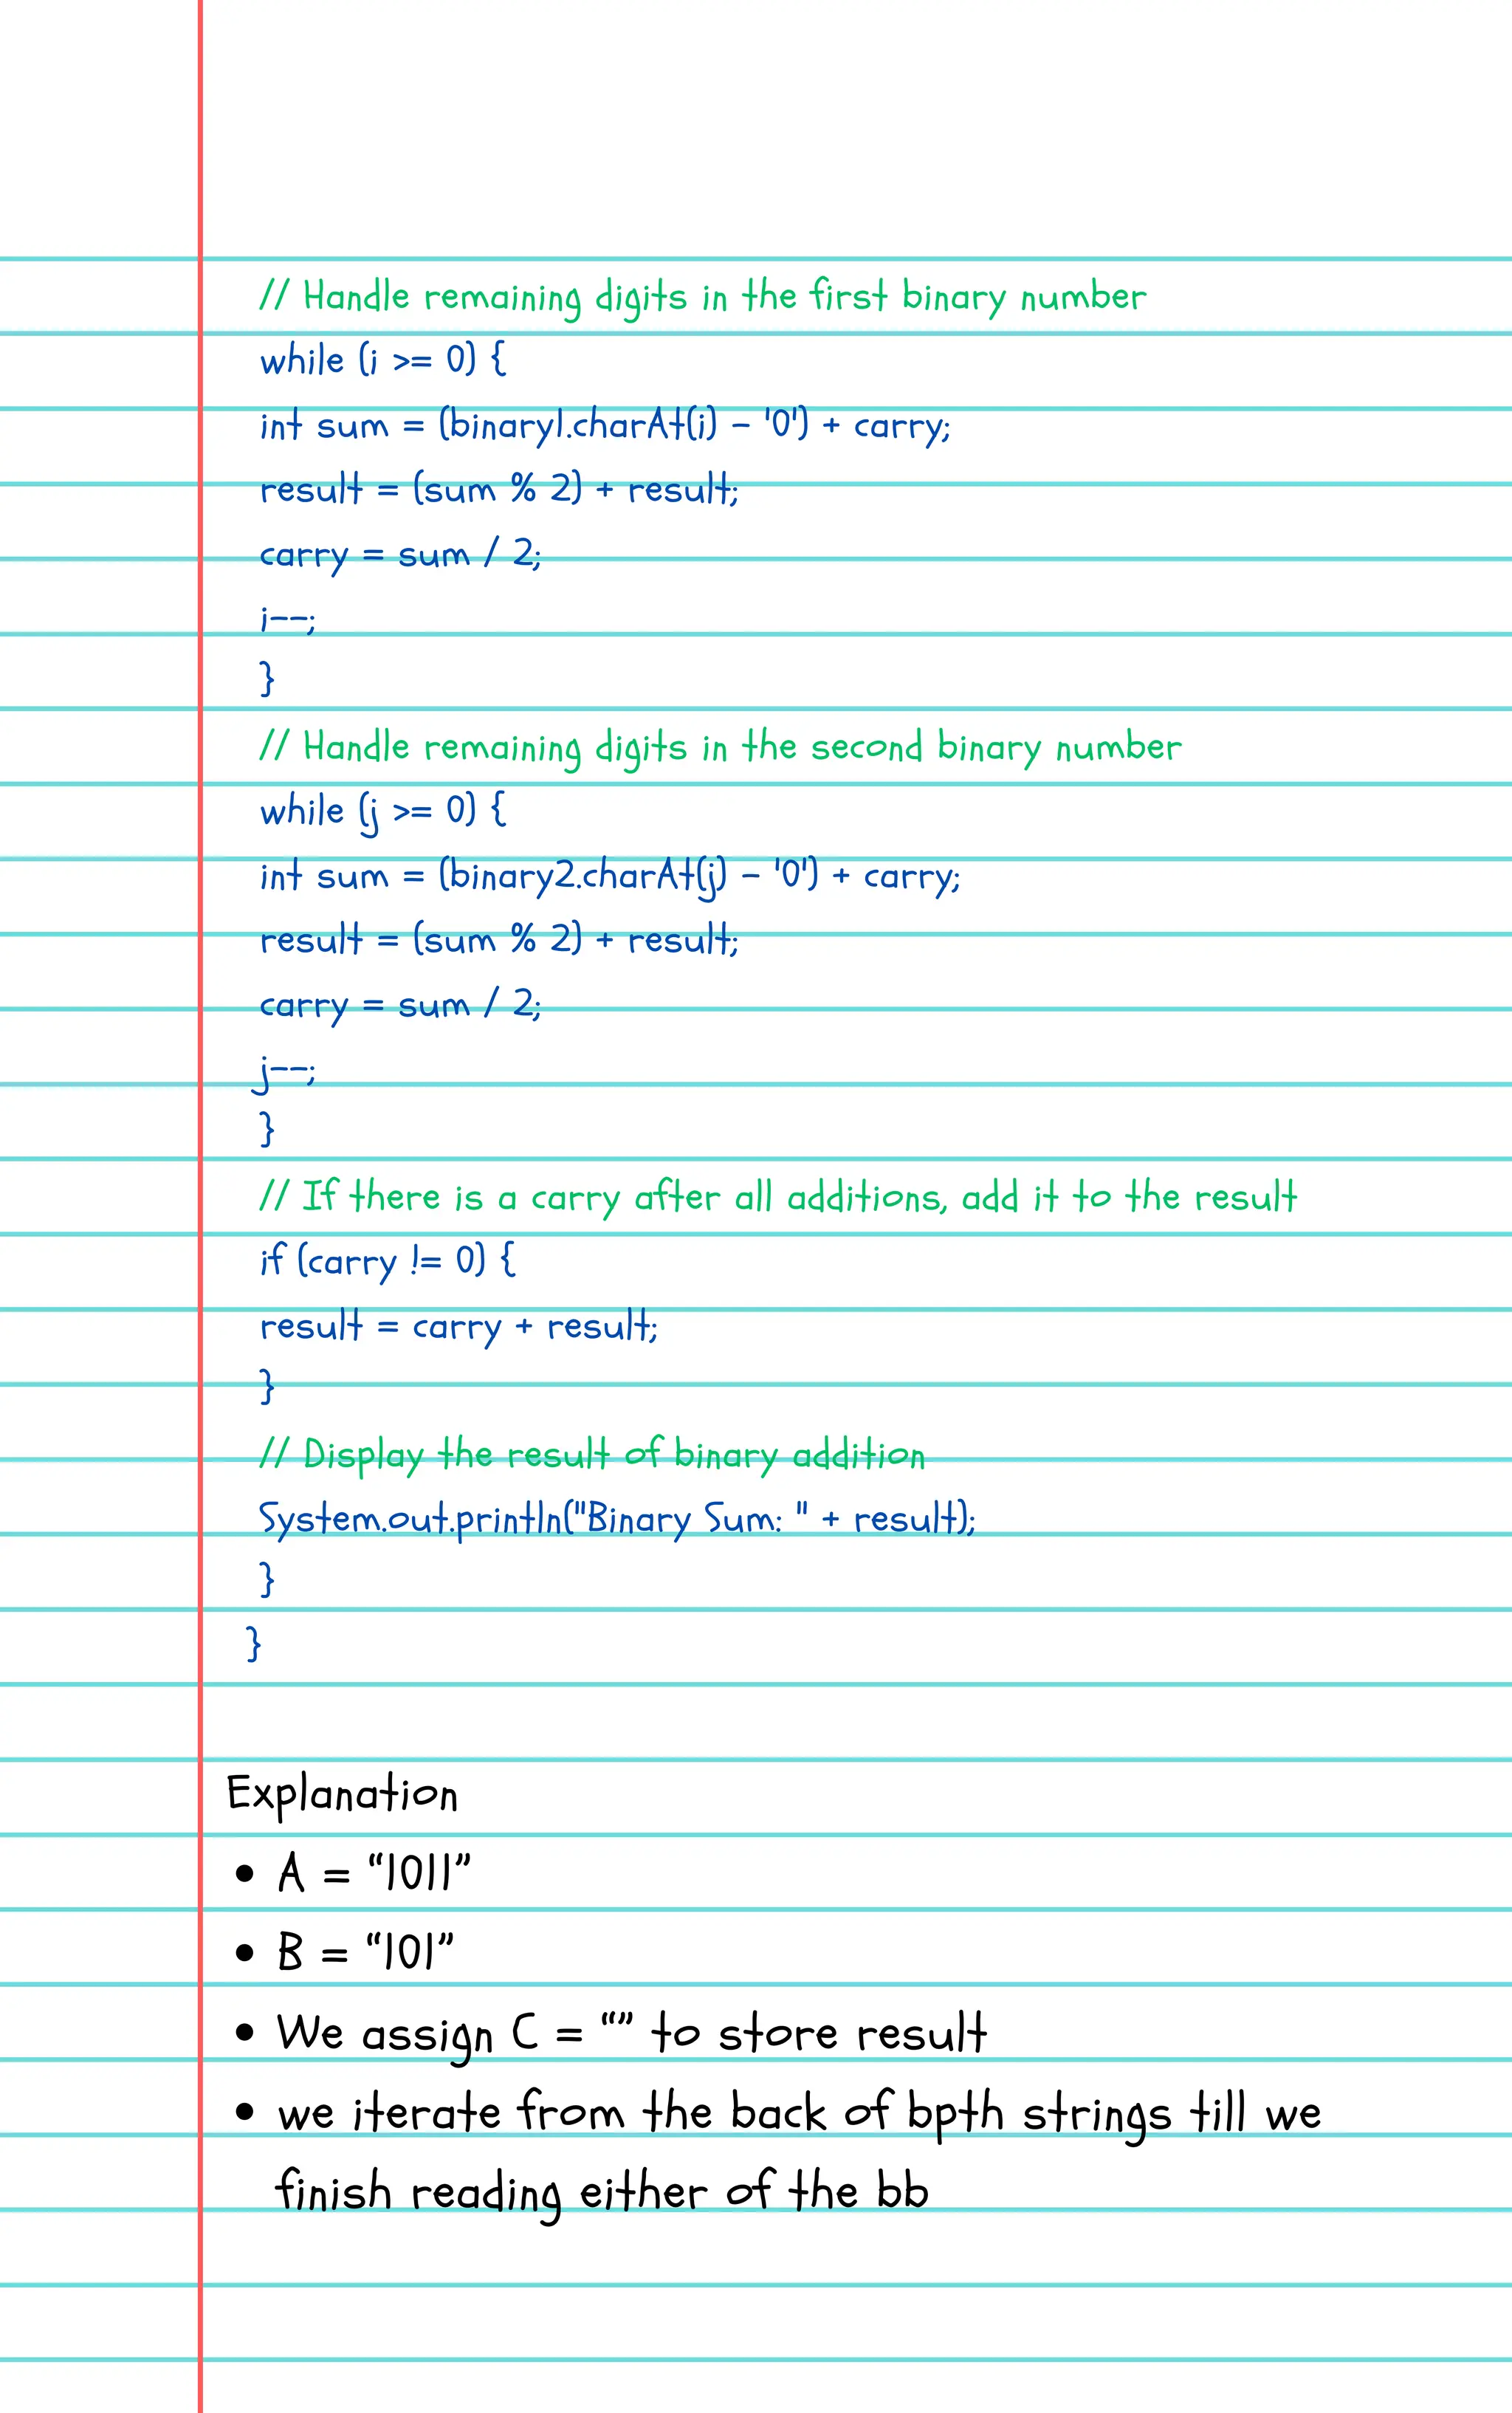 // Handle remaining digits in the first binary number
while (i >= 0) {
int sum = (binary1.charAt(i) - '0') + carry;
result = (sum % 2) + result;
carry = sum / 2;
i--;
}
// Handle remaining digits in the second binary number
while (j >= 0) {
int sum = (binary2.charAt(j) - '0') + carry;
result = (sum % 2) + result;
carry = sum / 2;
j--;
}
// If there is a carry after all additions, add it to the result
if (carry != 0) {
result = carry + result;
}
// Display the result of binary addition
System.out.println("Binary Sum: " + result);
}
}
Explanation
• A = “1011”
• B = “101”
• We assign C = “” to store result
• we iterate from the back of bpth strings till we
finish reading either of the bb